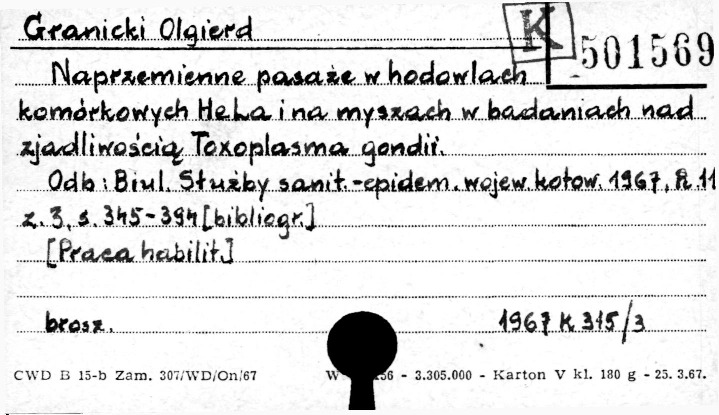 Granicki Olgierd
K
501569
Naprzemienne pasaże w hodowlach
komórkowych HeLa i na myszach w badaniach nad
zjadliwością Toxoplasma gondii.
Odb: Biul. Służby sanit.-epidem. wojew. kotow. 1967, R. 11
z. 3, s. 345-394 [bibliogr.]
[Praca habilit.]
brosz.
1967 K 315/3
CWD B 15-b Zam. 307/WD/On/67
56 - 3.305.000 - Karton V kl. 180 g - 25. 3.67.